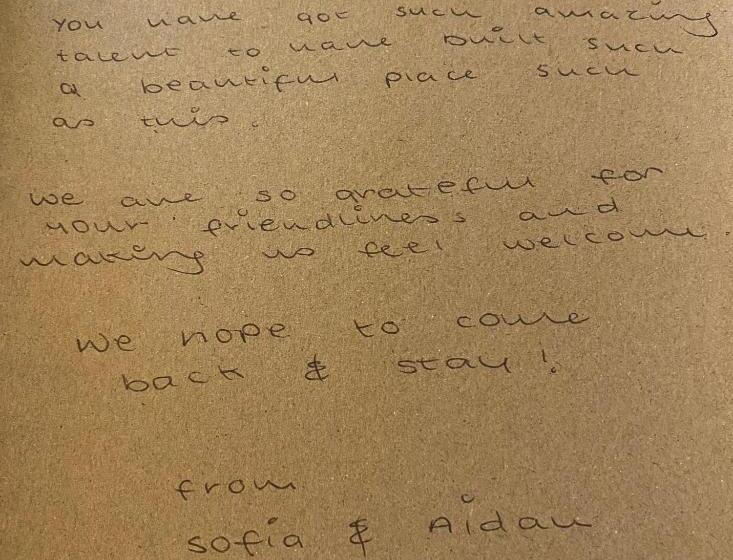 You have got such amazing
talent to have built such
a beautiful place such
as this.
We are so grateful for
your friendliness and
making us feel welcome.
We hope to come
back & stay!
from
Sofia & Aidan